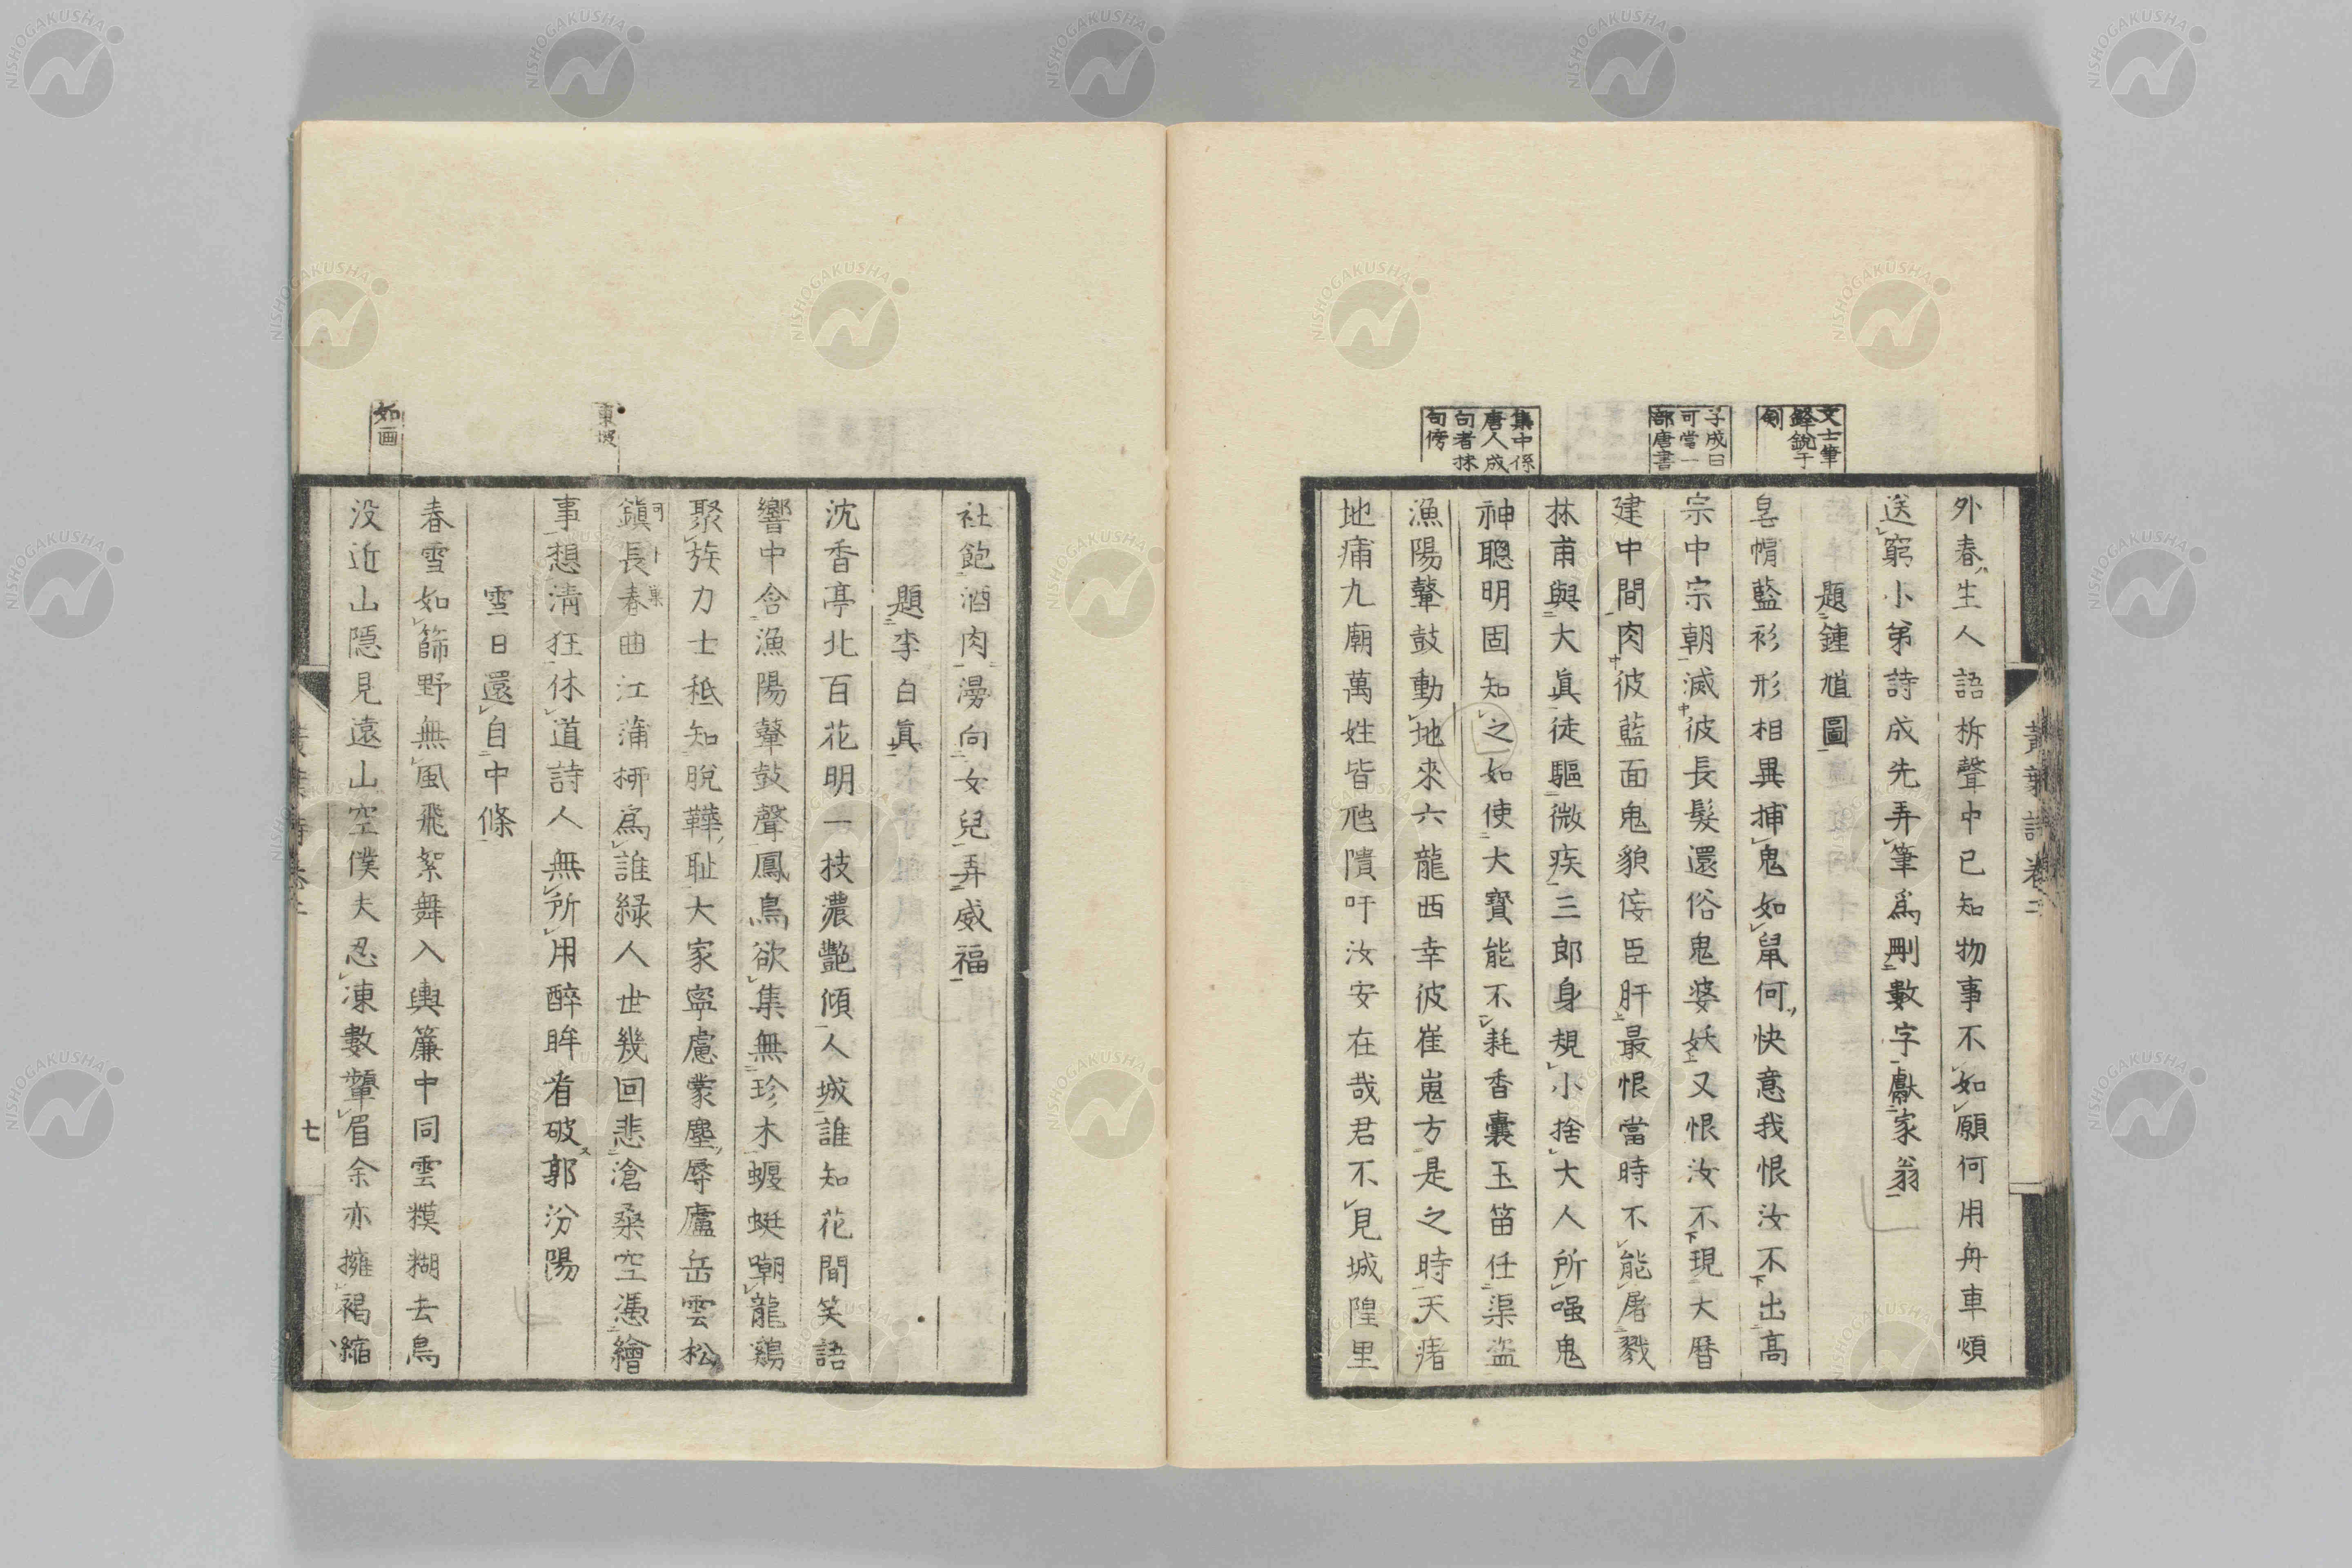 文士筆
鋒銳于
劍
子成曰
可當一
部唐書
集中係
唐人成
句者抹
句傍
外春生人語柝聲中已知物事不如願何用舟車煩
送窮小弟詩成先弄筆爲刪數字獻家翁
題鍾馗圖
皂㡌藍衫形相異捕鬼如鼠何快意我恨汝不出高
宗中宗朝滅彼長髮還俗鬼婆妖又恨汝不現大曆
建中間肉彼藍面鬼貌侫臣肝最恨當時不能屠戮
林甫與大眞徒驅微疾三郎身規小捨大人所嗤鬼
神聰明固知之如使大寳能不耗香囊玉笛任渠盜
漁陽鼙鼓動地來六龍西幸彼崔嵬方是之時天瘏
地痡九廟萬姓皆虺隤吁汝安在哉君不見城隍里
黃葉詩卷二
東坡
如画
社飽酒肉漫向女兒弄威福
題李白眞
沈香亭北百花明一技濃艷傾人城誰知花間笑語
響中含漁陽鼙鼓聲鳳鳥欲集無珍木蝘蜓嘲龍鷄
聚族力士秪知脫鞾耻大家寧慮蒙塵辱廬岳雲松
鎭長春曲江蒲桺爲誰緑人世幾回悲滄桑空憑繪
事想淸狂休道詩人無所用醉眸看破郭汾陽
雪日還自中條
春雪如篩野無風飛絮舞入輿簾中同雲糢糊去鳥
没近山隱見遠山空僕夫忍凍數顰眉余亦擁褐縮
七